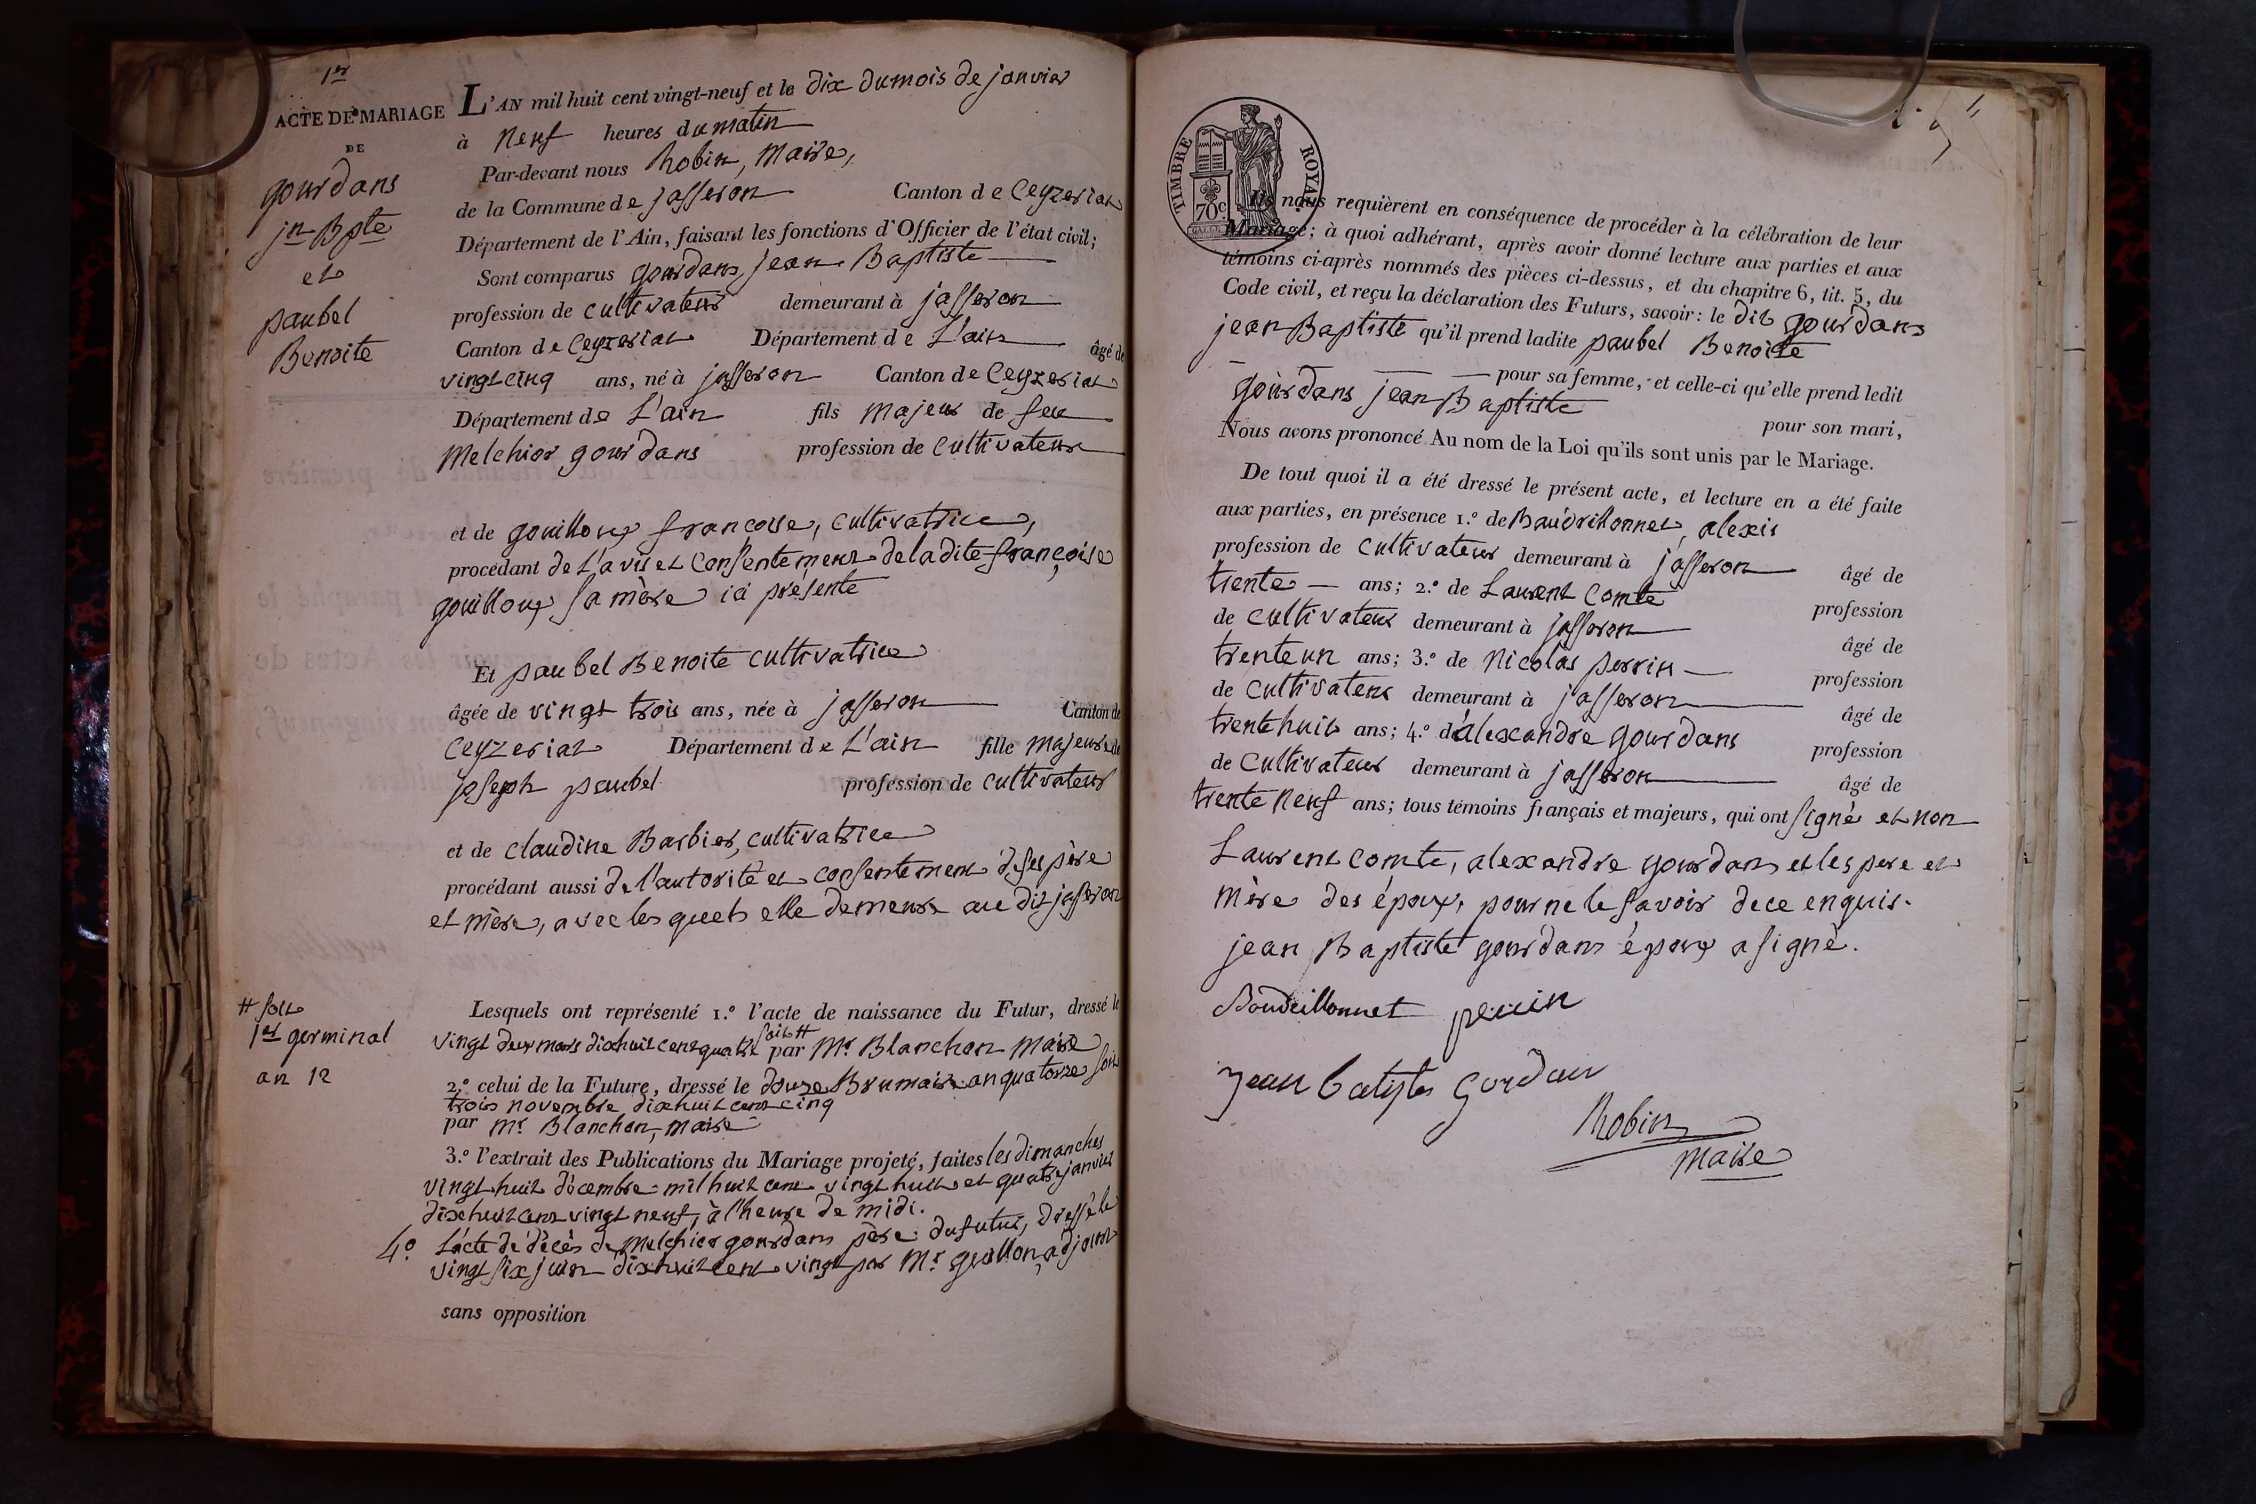 1er
ACTE DE MARIAGE
DE
gourdans
jn Bpte
et
paubel
Benoite
L'AN mil huit cent vingt-neuf et le dix du mois de janvier
à neuf heures du matin
Par-devant nous Robin, Maire,
de la Commune de jasseron Canton de Ceyzeriat
Département de l'Ain, faisant les fonctions d'Officier de l'état civil;
Sont comparus gourdans jean Baptiste
profession de cultivateur demeurant à jasseron
Canton de Ceyzeriat Département de L'ain âgé de
vingt cinq ans, né à jasseron Canton de Ceyzeriat
Département de L'ain fils majeur de feu
Melchior gourdans profession de cultivateur
et de gouilloux françoise, cultivatrice,
procédant de L'avis et consentement de la dite françoise
gouilloux sa mère ici présente
Et paubel Benoite cultivatrice
âgée de vingt trois ans, née à jasseron Canton de
Ceyzeriat Département de L'ain fille majeure de
joseph paubel profession de cultivateur
et de claudine Barbier, cultivatrice
procédant aussi de l'autorité et consentement de ses père
et mère, avec lesquels elle demeure au dit jasseron
Lesquels ont représenté 1.º l'acte de naissance du Futur, dressé le
vingt deux mars dixhuit cent quatre soit # par Mr Blanchon maire
# soit
1er germinal
an 12
2.º celui de la Future, dressé le douze Brumaire an quatorze soit
trois novembre dixhuit cent cinq
par Mr Blanchon, maire
3.º l'extrait des Publications du Mariage projeté, faites les dimanches
vingt huit décembre mil huit cent vingt huit et quatre janvier
dixhuit cent vingt neuf, à l'heure de midi.
4.º L'acte de décès de Melchior gourdans père du futur, dressé le
vingt six juin dixhuit cent vingt par Mr guillon, adjoint
sans opposition
TIMBRE ROYAL
70 c
Ils nous requièrent en conséquence de procéder à la célébration de leur
Mariage; à quoi adhérant, après avoir donné lecture aux parties et aux
témoins ci-après nommés des pièces ci-dessus, et du chapitre 6, tit. 5, du
Code civil, et reçu la déclaration des Futurs, savoir: le dit gourdans
jean Baptiste qu'il prend ladite paubel Benoite
pour sa femme, et celle-ci qu'elle prend ledit
gourdans jean Baptiste
pour son mari,
Nous avons prononcé Au nom de la Loi qu'ils sont unis par le Mariage.
De tout quoi il a été dressé le présent acte, et lecture en a été faite
aux parties, en présence 1.º de Baudrillonnet, alexis
profession de cultivateur demeurant à jasseron âgé de
trente ans; 2.º de Laurent comte profession
de cultivateur demeurant à jasseron âgé de
trente un ans; 3.º de Nicolas perrin profession
de cultivateur demeurant à jasseron âgé de
trente huit ans; 4.º d'alexandre gourdans profession
de cultivateur demeurant à jasseron âgé de
trente neuf ans; tous témoins français et majeurs, qui ont signé et non
Laurent comte, alexandre gourdans et les pere et
mère des époux, pour ne le savoir de ce enquis.
jean Baptiste gourdans époux a signé.
Boudrillonnet perrin
jean batiste gordan
Robin
Maire